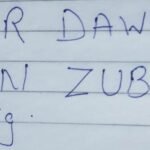 R DAW
NI ZUB
g.